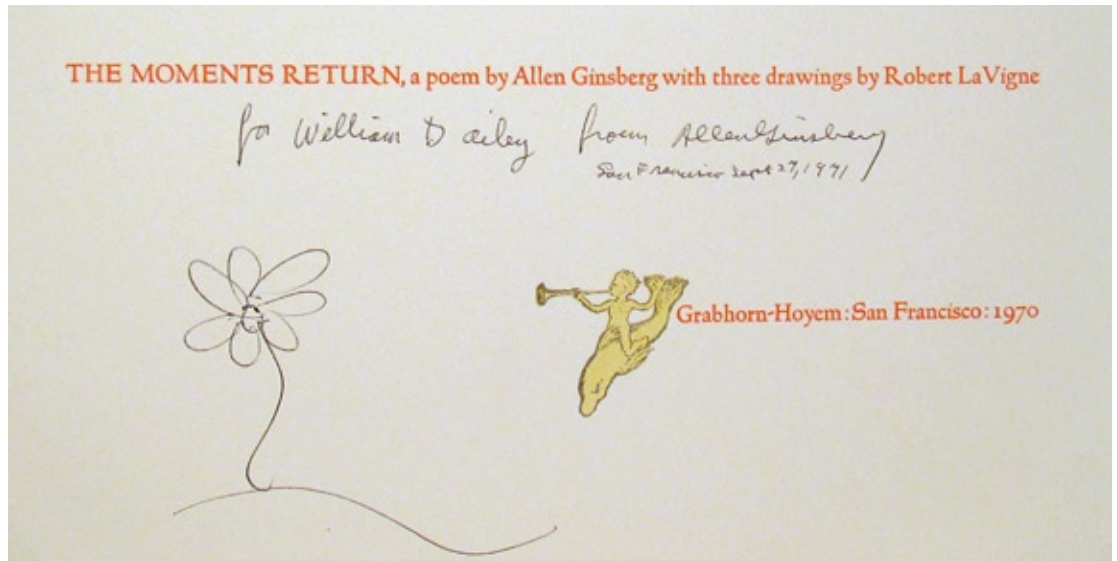 THE MOMENTS RETURN, a poem by Allen Ginsberg with three drawings by Robert LaVigne
for William Dailey from Allen Ginsberg
San Francisco Sept 27, 1971
Grabhorn-Hoyem: San Francisco: 1970